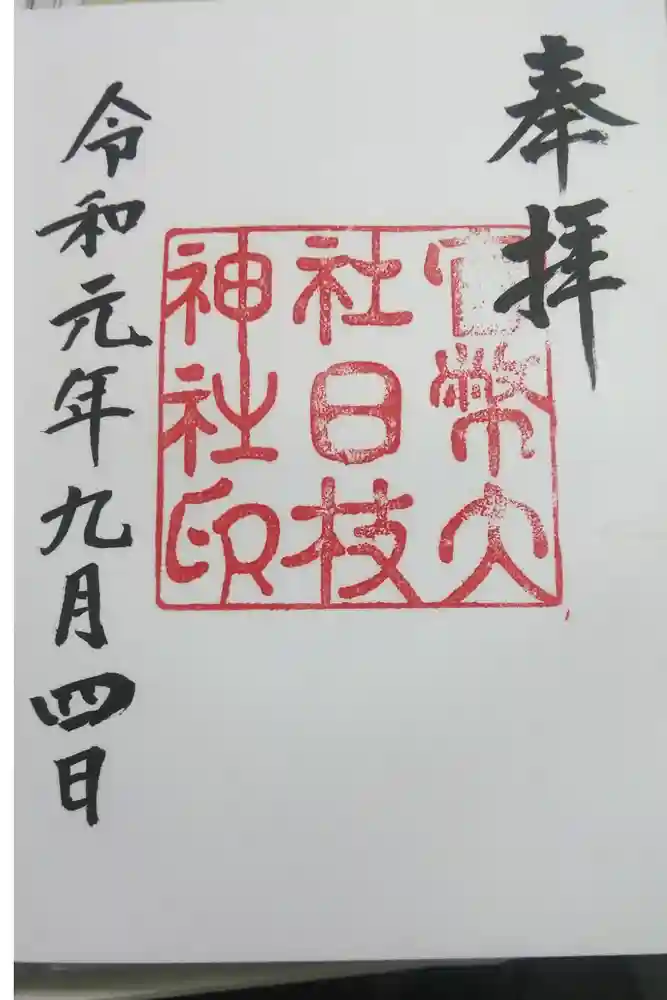 奉拝
官幣大
社日枝
神社印
令和元年九月四日